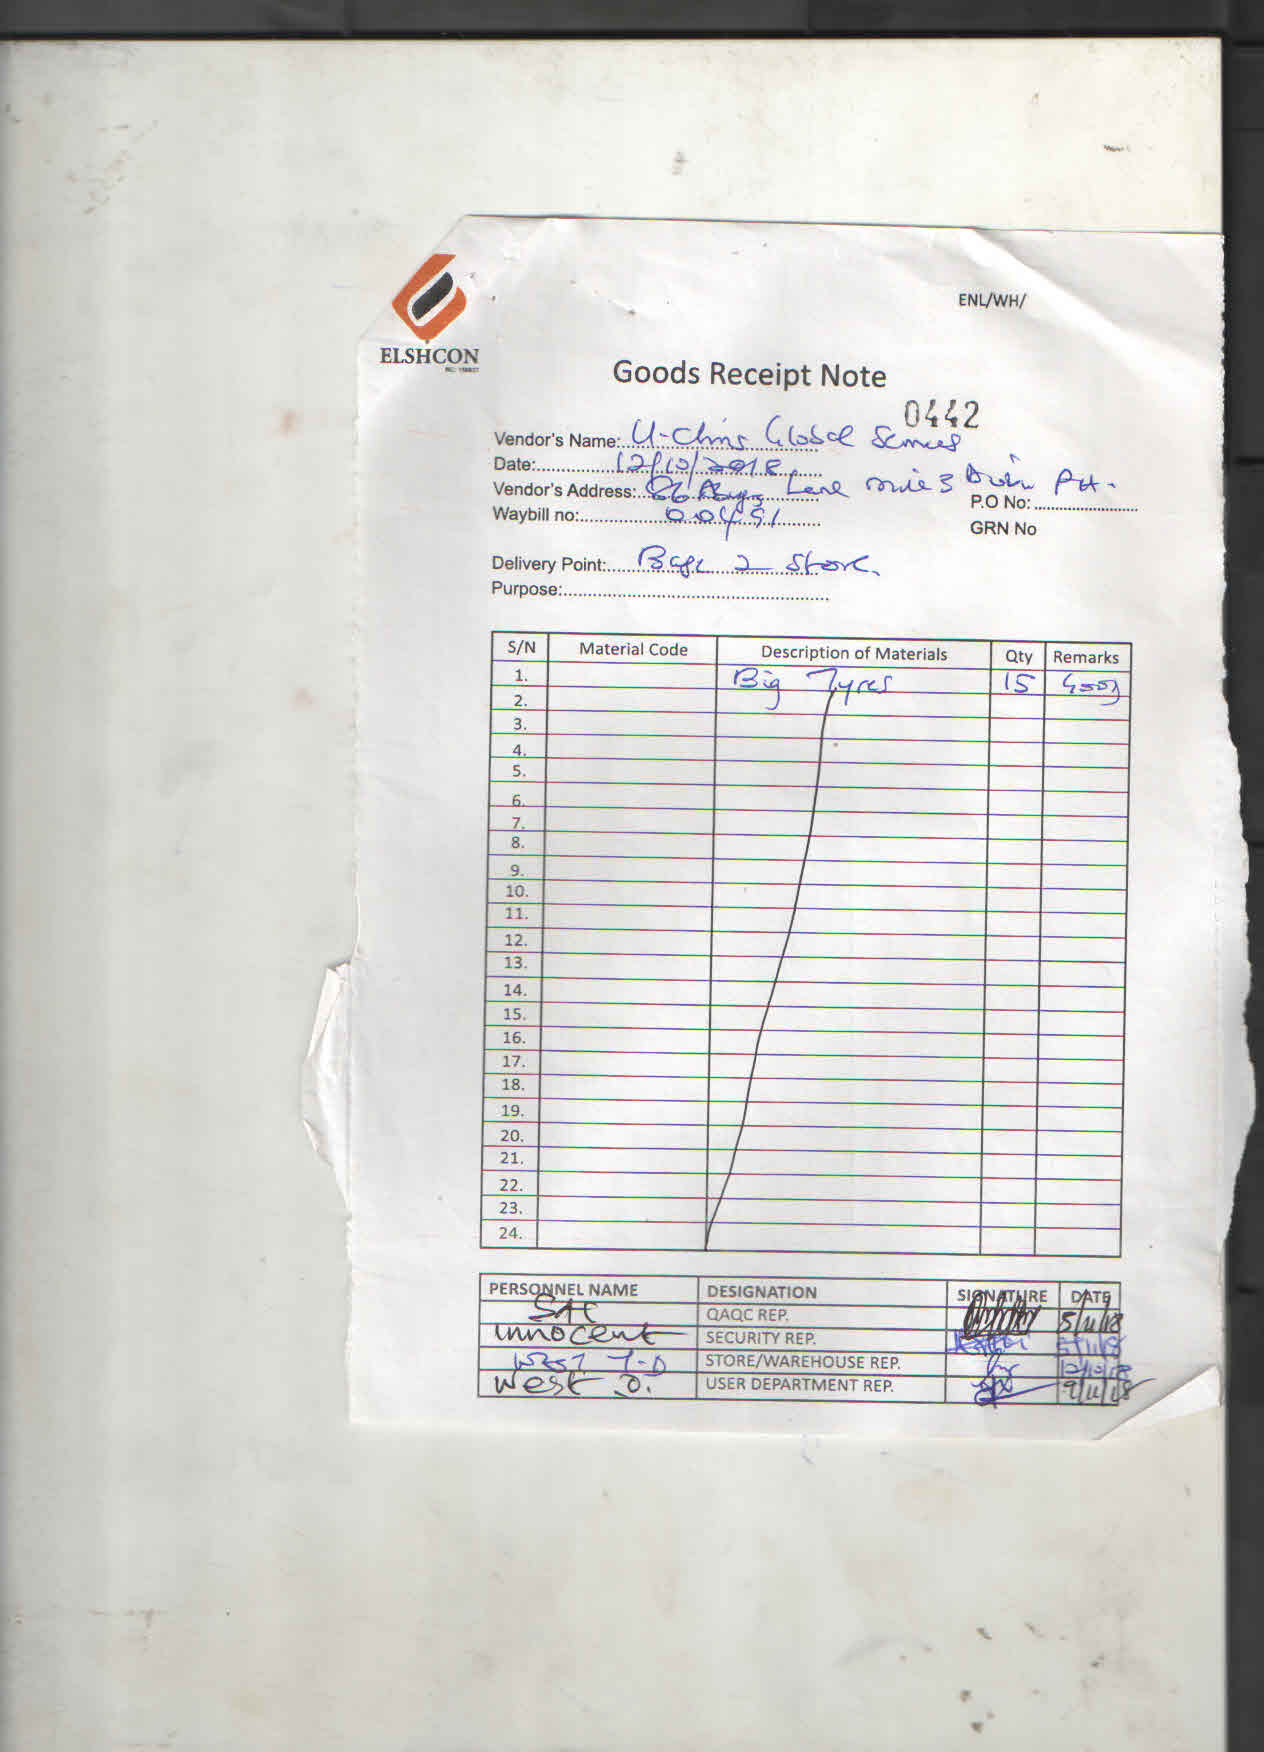 ENL/WH/
ELSHCON
Goods Receipt Note
0442
Vendor's Name: U-Chris Global Services
Date: 12/10/2018
Vendor's Address: Lane mile 3 PH.
P.O No:
Waybill no: 00491
GRN No
Delivery Point: Base 2 Store.
Purpose:
S/N Material Code Description of Materials Qty Remarks
1. Big Tyres 15 Good
2.
3.
4.
5.
6.
7.
8.
9.
10.
11.
12.
13.
14.
15.
16.
17.
18.
19.
20.
21.
22.
23.
24.
PERSONNEL NAME DESIGNATION SIGNATURE DATE
QAQC REP. 5/11/18
Innocent SECURITY REP. 5/11/18
West T-D STORE/WAREHOUSE REP. 12/10/18
West D. USER DEPARTMENT REP. 9/11/18